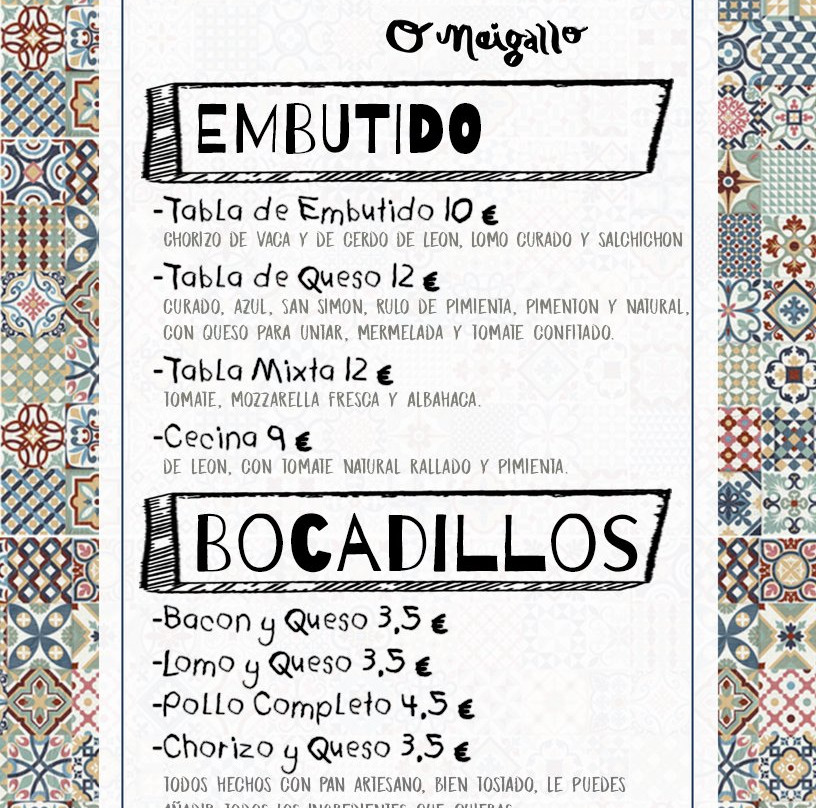 O Meigallo
EMBUTIDO
-Tabla de Embutido 10 €
CHORIZO DE VACA Y DE CERDO DE LEON, LOMO CURADO Y SALCHICHON
-Tabla de Queso 12 €
CURADO, AZUL, SAN SIMON, RULO DE PIMIENTA, PIMENTON Y NATURAL,
CON QUESO PARA UNTAR, MERMELADA Y TOMATE CONFITADO.
-Tabla Mixta 12 €
TOMATE, MOZZARELLA FRESCA Y ALBAHACA.
-Cecina 9 €
DE LEON, CON TOMATE NATURAL RALLADO Y PIMIENTA.
BOCADILLOS
-Bacon y Queso 3,5 €
-Lomo y Queso 3,5 €
-Pollo Completo 4,5 €
-Chorizo y Queso 3,5 €
TODOS HECHOS CON PAN ARTESANO, BIEN TOSTADO, LE PUEDES
AÑADIR TODOS LOS INGREDIENTES QUE QUIERAS